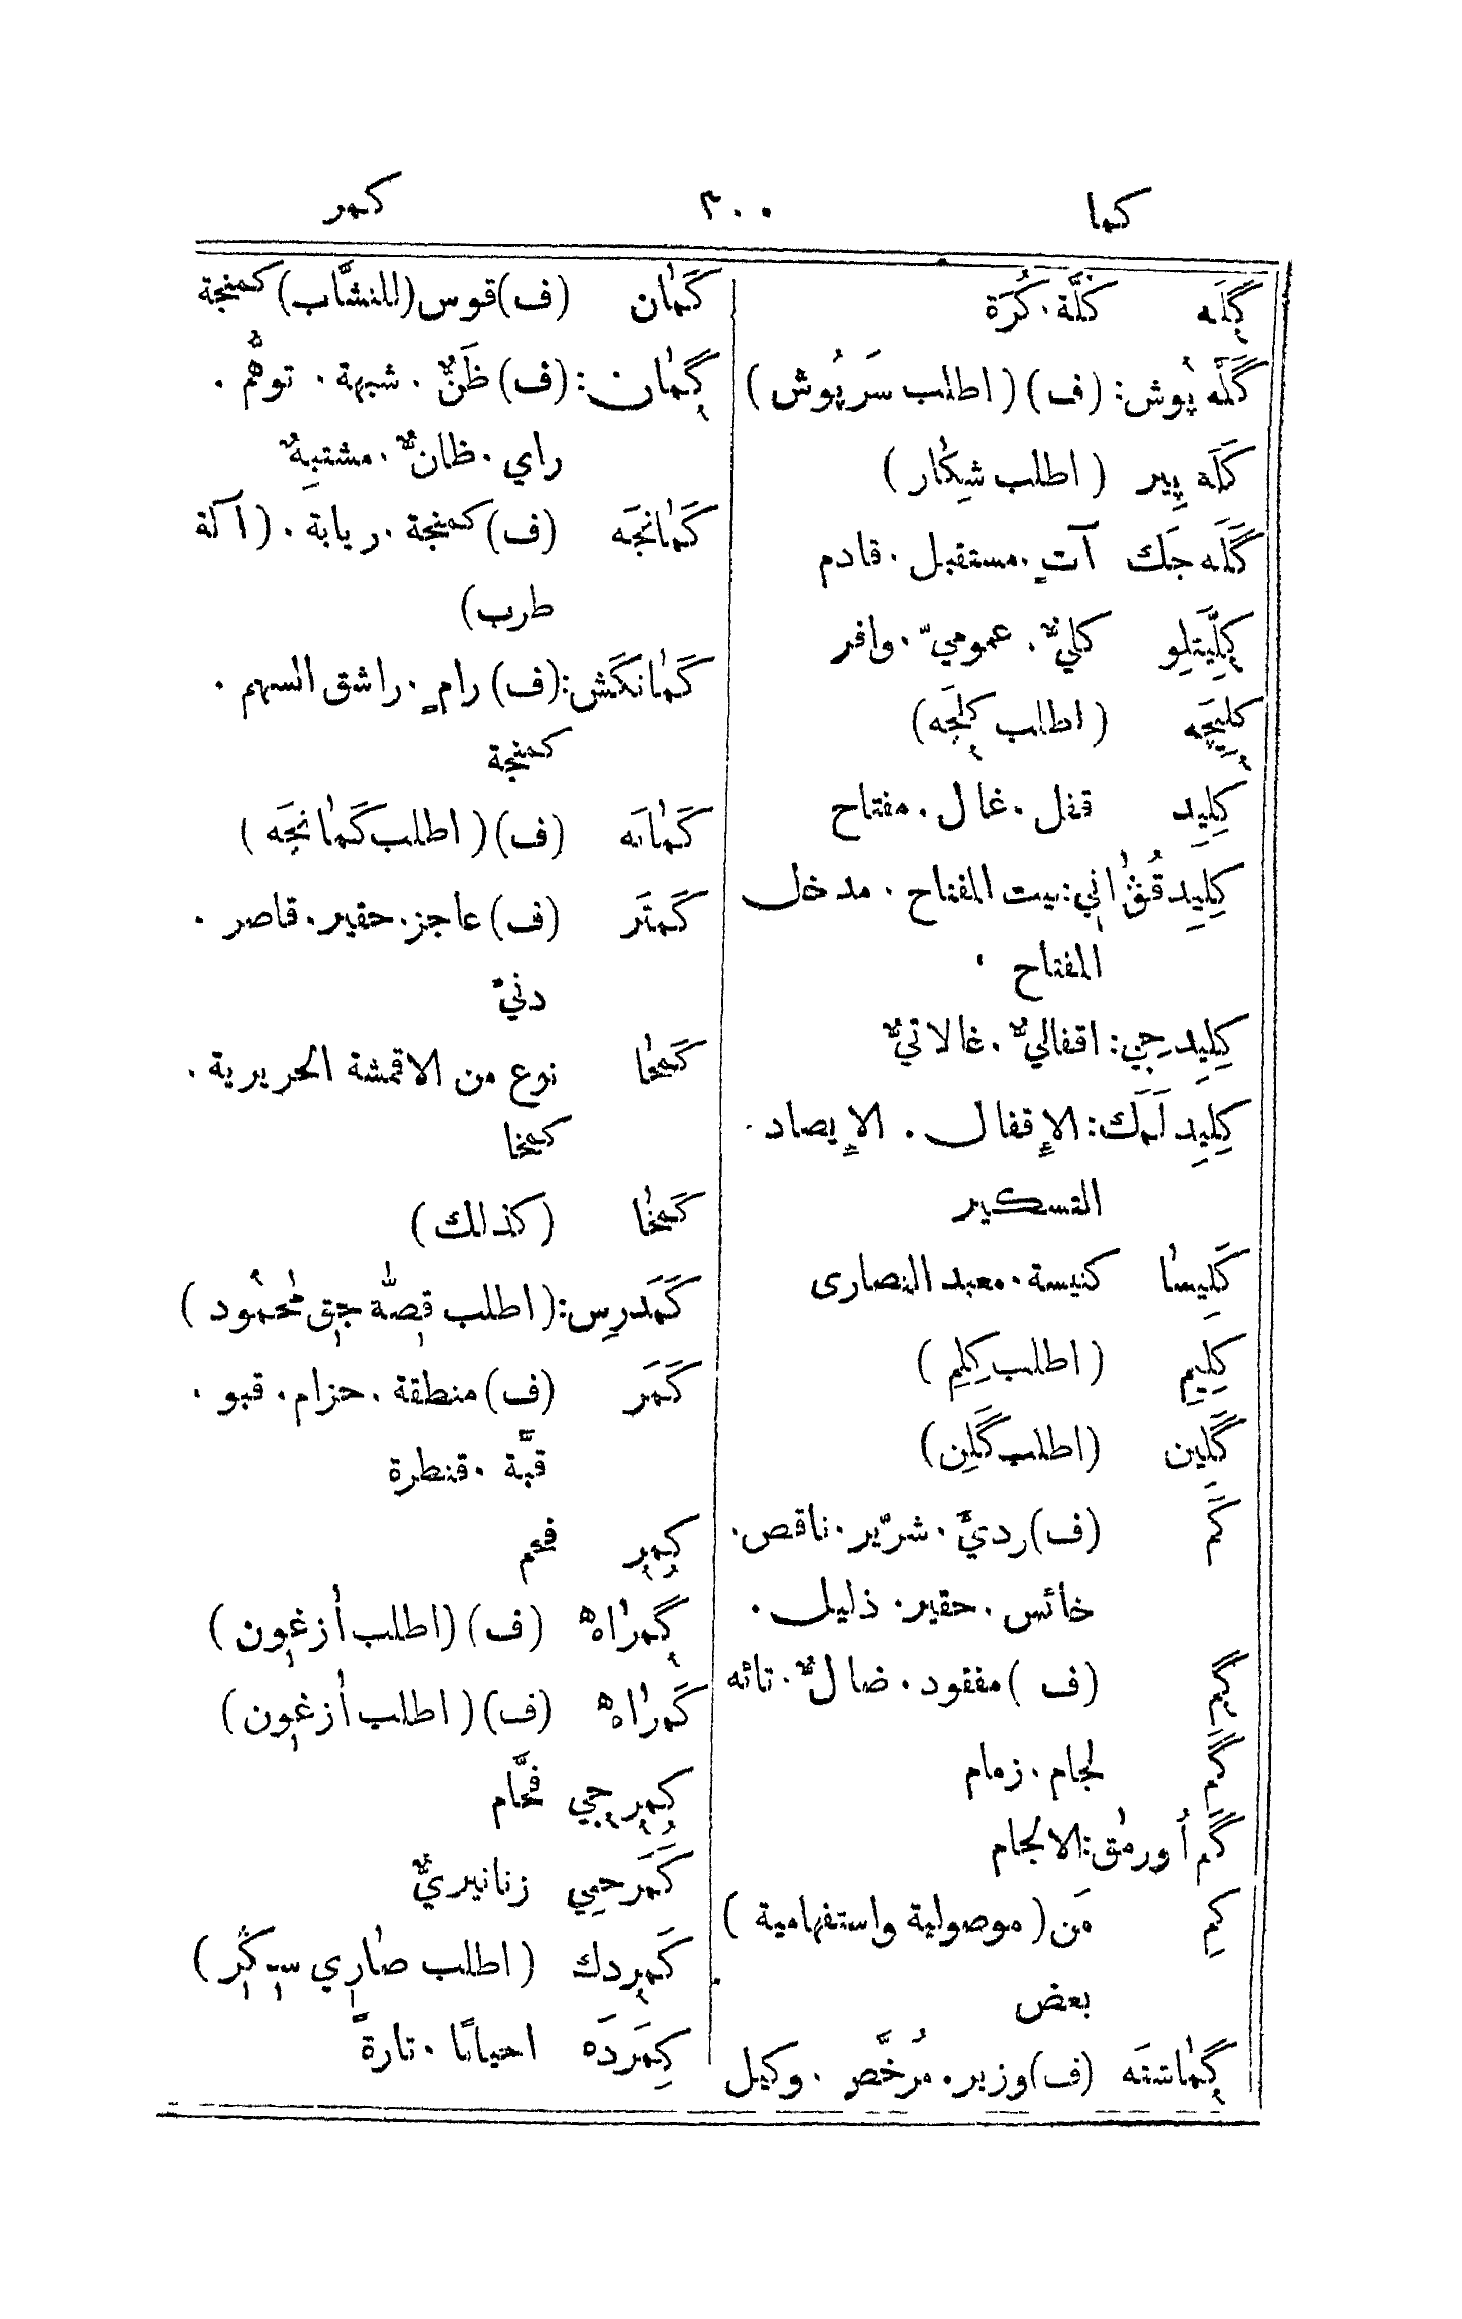 كما ٣٠٠ كمر
گُلَه كُلَّة . كُرَة
گَلَّه پُوش : (ف) (اطلب سَرپُوش)
كَلَه پِير (اطلب شِكَار)
گَلَه جَك آتٍ . مستقبل . قادم
كِلِّيَتلِو كليٌّ . عموميّ . وافر
كِلِيجَه (اطلب كِلجَه)
كِلِيد قفل . غال . مفتاح
كِلِيد : بيت المفتاح . مدخل
المفتاح .
كِلِيدجِي : اقفاليٌّ . غالاتيٌّ
كِلِيدلَمَك : الإقفال . الإيصاد .
التسكير
كَلِيسَا كنيسة . معبد النصارى
كِلِيم (اطلب كِلِم)
گَلِين (اطلب گَلِن)
كَم (ف) رديٌّ . شرّير . ناقص .
خائس . حقير . ذليل .
گُم (ف) مفقود . ضالٌّ . تائه
گَم لجام . زمام
گَم أُورمَق : الالجام
كِم مَن (موصولية واستفهامية)
بعض
گُمَاشتَه (ف) وزير . مُرخَّص . وكيل
كَمَان (ف) قوس (للنشَّاب) كمنجة
گُمَان : (ف) ظَنٌّ . شبهة . توهُّم .
راي . ظانٌّ . مشتبِهٌ
كَمَانجَه (ف) كمنجة . ربابة . (آلة
طرب)
كَمَانكَش : (ف) رامٍ . راشق السهم .
كمنجة
كَمَانَه (ف) (اطلب كَمَانجَه)
كَمتَر (ف) عاجز . حقير . قاصر .
دنيّ
كَمحَا نوع من الاقمشة الحريرية .
كمخا
كَمخَا (كذلك)
كَمَدرِس : (اطلب قصَّه جِق مَحمُود)
كَمَر (ف) منطقة . حزام . قبو .
قبَّة . قنطرة
كمر فحم
گُمرَاه (ف) (اطلب أَزغون)
كَمرَاه (ف) (اطلب أَزغون)
كمرجي فحَّام
كَمَرجِي زنانيريٌّ
كَمردك (اطلب صَارِي)
كِمَردَه احيانًا . تارةً